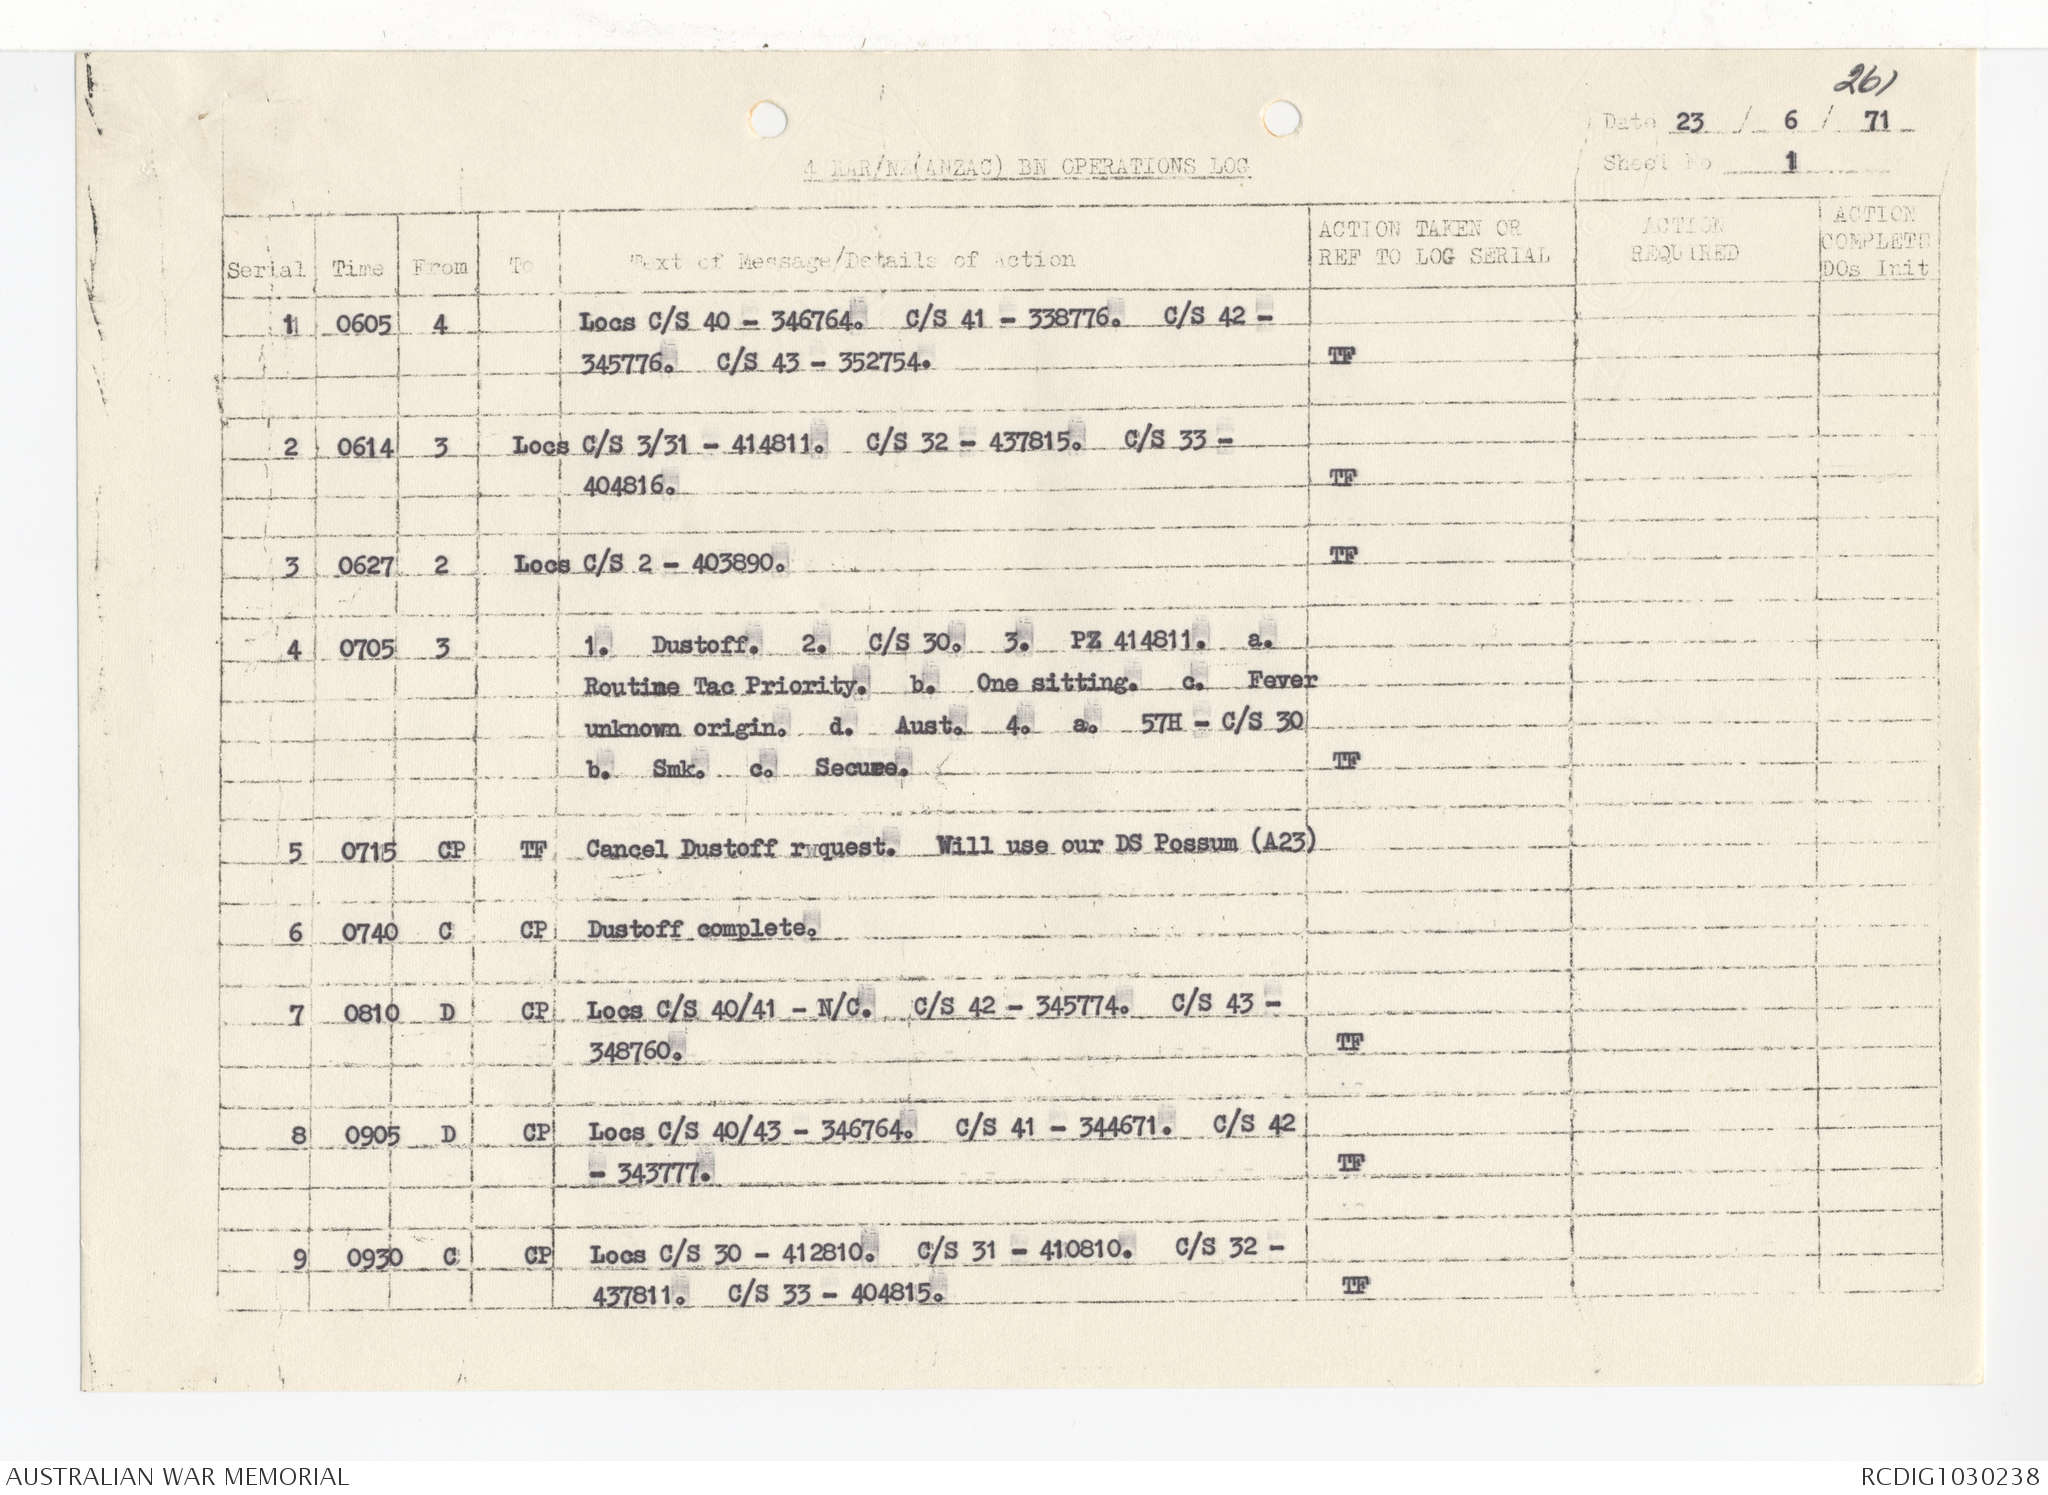 261
Date 23 / 6 / 71
Sheet No 1
4 RAR/NZ(ANZAC) BN OPERATIONS LOG
Serial Time From To Text of Message/Details of Action ACTION TAKEN OR REF TO LOG SERIAL ACTION REQUIRED ACTION COMPLETE DOs Init
1 0605 4 Locs C/S 40 - 346764. C/S 41 - 338776. C/S 42 -
345776. C/S 43 - 352754. TF
2 0614 3 Locs C/S 3/31 - 414811. C/S 32 - 437815. C/S 33 -
404816. TF
3 0627 2 Locs C/S 2 - 403890. TF
4 0705 3 1. Dustoff. 2. C/S 30. 3. PZ 414811. a.
Routine Tac Priority. b. One sitting. c. Fever
unknown origin. d. Aust. 4. a. 57H - C/S 30
b. Smk. c. Secure. TF
5 0715 CP TF Cancel Dustoff rwquest. Will use our DS Possum (A23)
6 0740 C CP Dustoff complete.
7 0810 D CP Locs C/S 40/41 - N/C. C/S 42 - 345774. C/S 43 -
348760. TF
8 0905 D CP Locs C/S 40/43 - 346764. C/S 41 - 344671. C/S 42
- 343777. TF
9 0930 C CP Locs C/S 30 - 412810. C/S 31 - 410810. C/S 32 -
437811. C/S 33 - 404815. TF
AUSTRALIAN WAR MEMORIAL RCDIG1030238